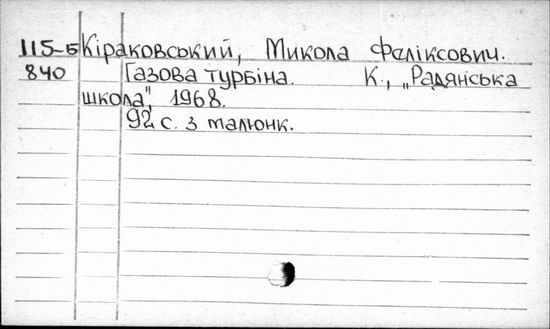 115-Б Кіраковський, Микола Фаліксович.
840 Газова турбіна. К., „Радянська
школа", 1968.
92 с. з малюнк.